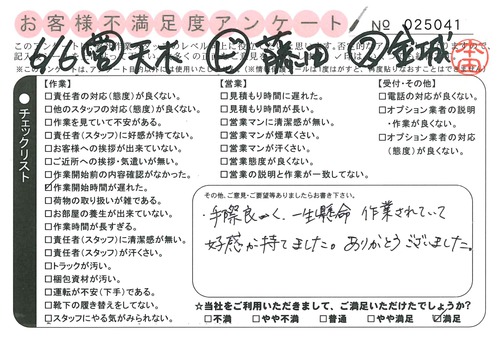 お客様不満足度アンケート
No 025041
6/6 営 夫木 藤田 金城
【作業】
□責任者の対応(態度)が良くない。
□他のスタッフの対応(態度)が良くない。
□作業を見ていて不安がある。
□責任者(スタッフ)に好感が持てない。
□お客様への挨拶が出来ていない。
□ご近所への挨拶・気遣いが無い。
□作業開始前の内容確認がなかった。
☑作業開始時間が遅れた。
□荷物の取り扱いが雑である。
□お部屋の養生が出来ていない。
□作業時間が長すぎる。
□責任者(スタッフ)に清潔感が無い。
□責任者(スタッフ)が汗くさい。
□トラックが汚い。
□梱包資材が汚い。
□運転が不安(下手)である。
□靴下の履き替えをしてない。
□スタッフにやる気がみられない。
【営業】
□見積もり時間に遅れた。
□見積もり時間が長い。
□営業マンに清潔感が無い。
□営業マンが煙草くさい。
□営業マンが汗くさい。
□営業態度が良くない。
□営業の説明と作業が一致してない。
【受付・その他】
□電話の対応が良くない。
□オプション業者の説明
・作業が良くない。
□オプション業者の対応
(態度)が良くない。
チェックリスト
その他、ご意見・ご要望等ありましたらお書き下さい。
・手際良く、一生懸命 作業されていて
好感が持てました。ありがとうございました。
☆当社をご利用いただきまして、ご満足いただけたでしょうか?
□不満 □やや不満 □普通 □やや満足 ☑満足